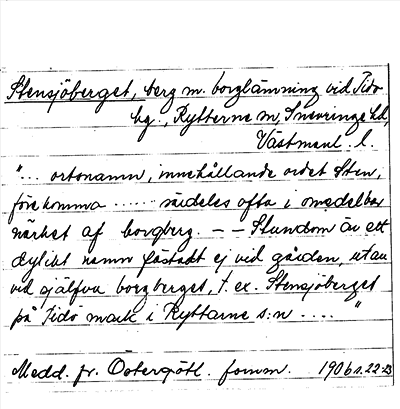 Stensjöberget, berg m. borglämning vid Tidö
hg., Rytterne sn, Snevringe hd,
Västmanl. l.
"... ortnamn, innehållande ordet Sten,
förekomma ...... särdeles ofta i omedelbar
närhet af borgberg. – – Stundom är ett
dylikt namn fästadt ej vid gården, utan
vid själfva borgberget, t. ex. Stensjöberget
på Tidö mark i Ryttarne s:n .... "
Medd. fr. Östergötl. fornm. 1906 s. 22-23